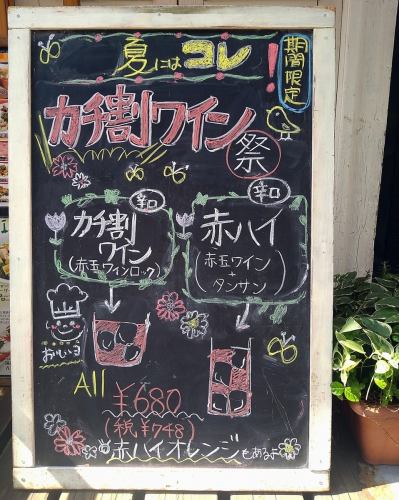 夏にはコレ!
期間限定
カチ割ワイン
祭
辛口
カチ割
ワイン
(赤玉ワインロック)
辛口
赤ハイ
(赤玉ワイン
+
タンサン)
おいしいヨ
All
¥680
(税¥748)
赤ハイオレンジもあるよ